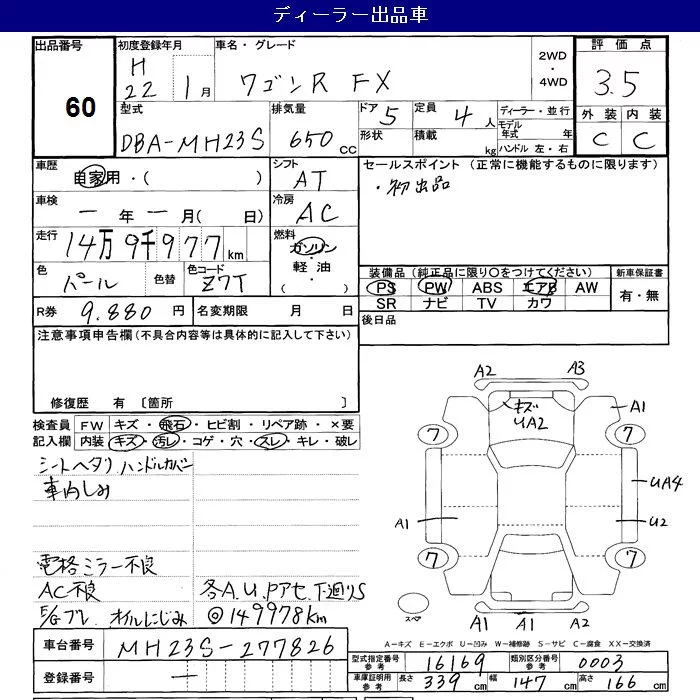 ディーラー出品車
出品番号 60
初度登録年月 H22 1月
車名・グレード ワゴンR FX
2WD・4WD
評価点 3.5
型式 DBA-MH23S
排気量 650cc
ドア 5
定員 4人
ディーラー・並行
形状
積載 kg
モデル年式 年
ハンドル 左・右
外装 内装
C C
車歴 自家用・( )
シフト AT
セールスポイント (正常に機能するものに限ります)
・初出品
車検 ー年ー月( 日)
冷房 AC
走行 14万9千977km
燃料 ガソリン・軽油・( )
色 パール
色替
色コード Z7T
装備品(純正品に限り○をつけてください)
新車保証書
PS PW ABS エアB AW
有・無
SR ナビ TV カワ
R券 9.880円
名変期限 月 日
後日品
注意事項申告欄(不具合内容等は具体的に記入して下さい)
修復歴 有 〔箇所 〕
検査員記入欄
FW キズ・飛石・ヒビ割・リペア跡・×要
内装 キズ・汚レ・コゲ・穴・スレ・キレ・破レ
シートヘタリ ハンドルカバー
車内しみ
電格ミラー不良
AC不良 各A.U.Pアセ.下廻りS
E/Gブレ オイルにじみ ◎149978km
A2 A3
キズ
UA2
A1
7 7
UA4
A1 U2
7 7
スペア
A1 A1 A2
A-キズ E-エクボ U-凹み W-補修跡 S-サビ C-腐食 XX-交換済
車台番号 MH23S-277826
登録番号 ー
型式指定番号参考 16169
類別区分番号参考 0003
車庫証明用参考 長さ 339cm 幅 147cm 高さ 166cm